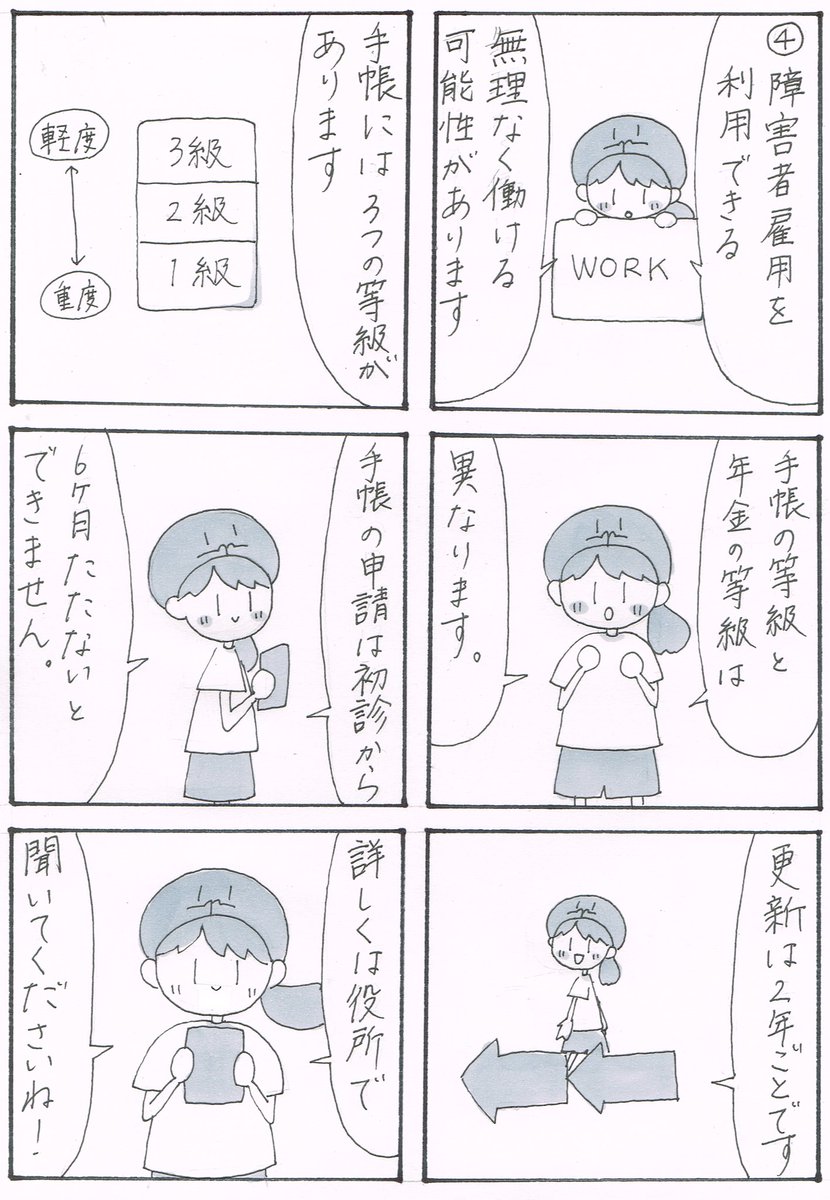 ④障害者雇用を
利用できる
WORK
無理なく働ける
可能性があります
手帳には3つの等級が
あります
3級
2級
1級
軽度
重度
手帳の等級と
年金の等級は
異なります。
手帳の申請は初診から
6ケ月たたないと
できません。
更新は2年ごとです
詳しくは役所で
聞いてくださいね!